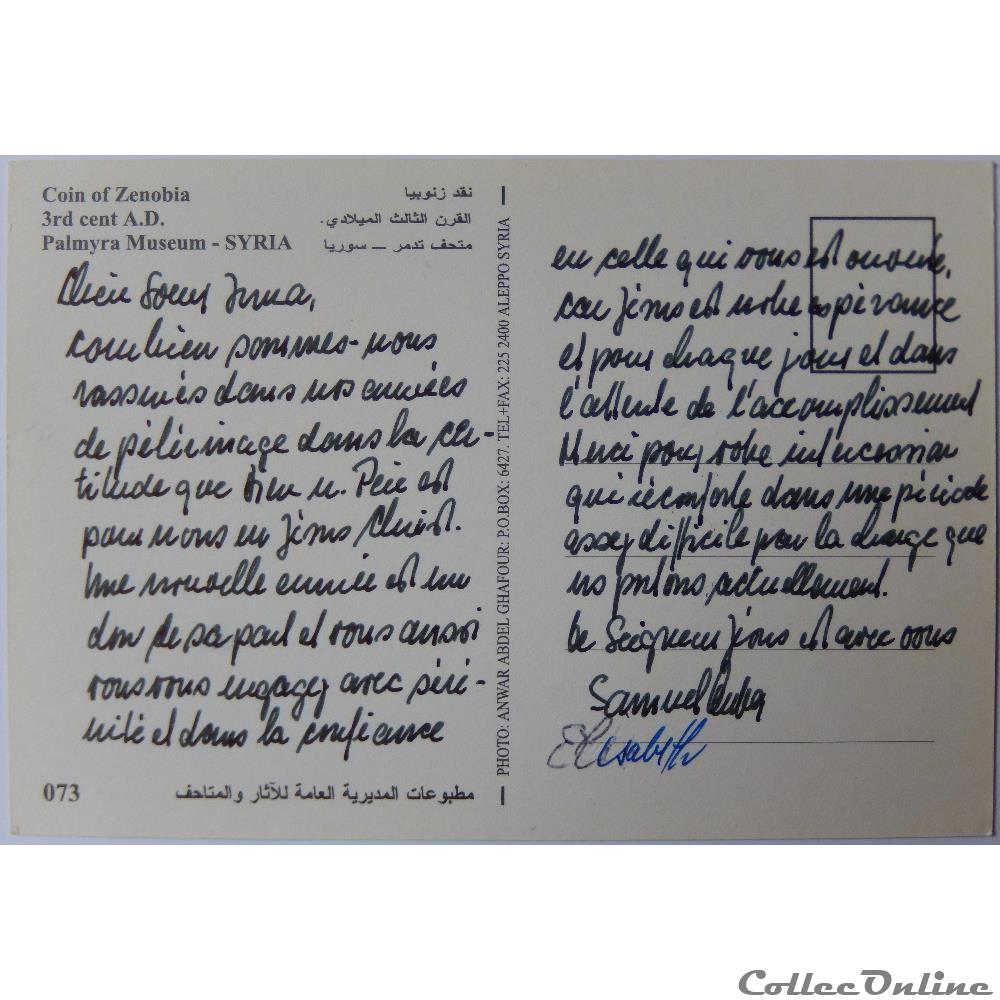 Coin of Zenobia
3rd cent A.D.
Palmyra Museum - SYRIA
نقد زنوبيا
القرن الثالث الميلادي.
متحف تدمر – سوريا
Chère Soeur Irma,
combien sommes-nous
rassurés dans nos années
de pélérinage dans la cer-
titude que Dieu n. Père est
pour nous en Jésus Christ.
Une nouvelle année est un
don de sa part et vous aussi
vous vous engagez avec séré-
nité et dans la confiance
073
مطبوعات المديرية العامة للآثار والمتاحف
PHOTO: ANWAR ABDEL GHAFOUR: P.O.BOX: 6427. TEL+FAX: 225 2400 ALEPPO SYRIA
en celle qui vous est ouverte,
car Jésus est notre espérance
et pour chaque jour et dans
l'attente de l'accomplissement
Merci pour votre intercession
qui réconforte dans une période
assez difficile par la charge que
ns portons actuellement.
Le Seigneur Jésus est avec vous
Samuel
Elisabeth
CollecOnline